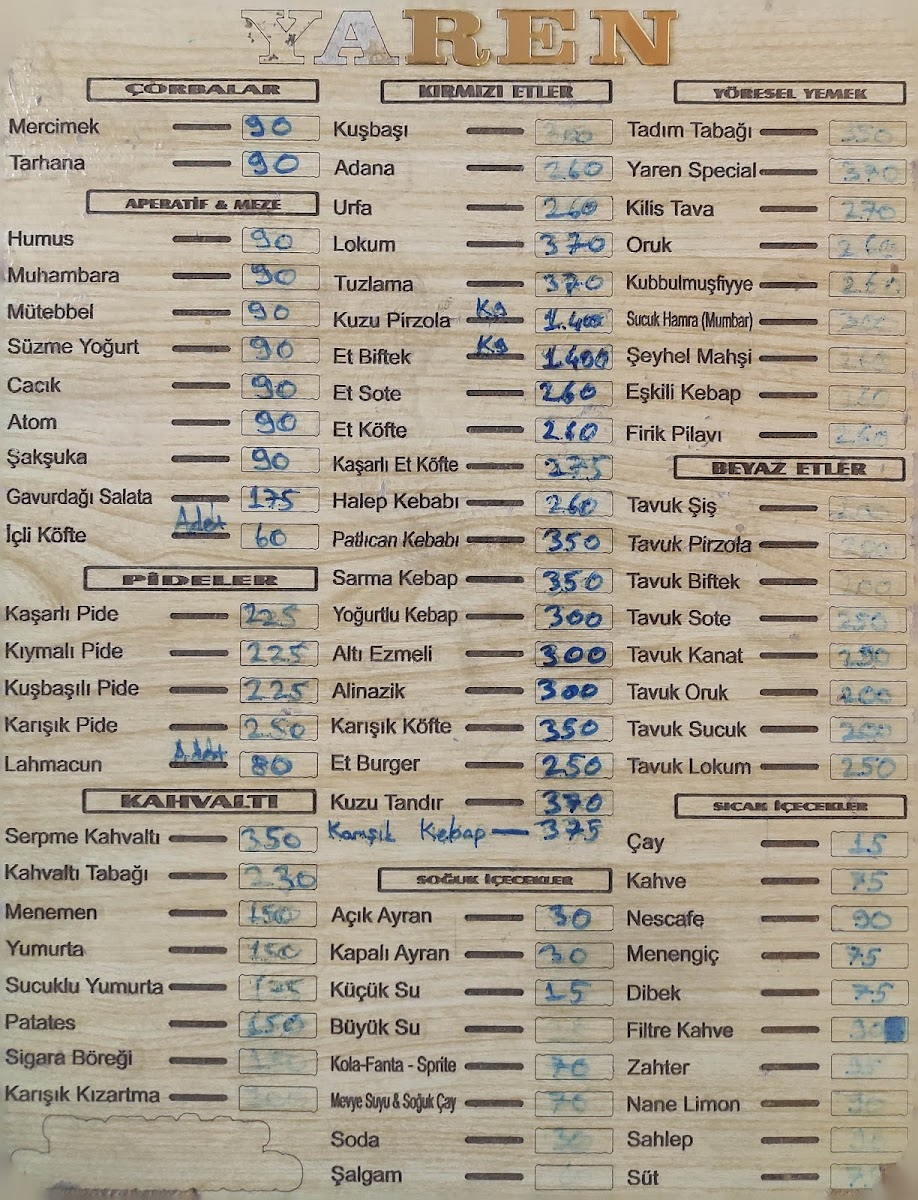 YAREN
ÇORBALAR
Mercimek 90
Tarhana 90
APERATİF & MEZE
Humus 90
Muhambara 90
Mütebbel 90
Süzme Yoğurt 90
Cacık 90
Atom 90
Şakşuka 90
Gavurdağı Salata 175
İçli Köfte Adet 60
PİDELER
Kaşarlı Pide 225
Kıymalı Pide 225
Kuşbaşılı Pide 225
Karışık Pide 250
Lahmacun Adet 80
KAHVALTI
Serpme Kahvaltı 350
Kahvaltı Tabağı 230
Menemen 150
Yumurta 150
Sucuklu Yumurta
Patates 150
Sigara Böreği
Karışık Kızartma
KIRMIZI ETLER
Kuşbaşı
Adana 260
Urfa 260
Lokum 370
Tuzlama 370
Kuzu Pirzola Kg 1.400
Et Biftek Kg 1.400
Et Sote 260
Et Köfte 260
Kaşarlı Et Köfte 275
Halep Kebabı 260
Patlıcan Kebabı 350
Sarma Kebap 350
Yoğurtlu Kebap 300
Altı Ezmeli 300
Alinazik 300
Karışık Köfte 350
Et Burger 250
Kuzu Tandır 370
Karışık Kebap 375
SOĞUK İÇECEKLER
Açık Ayran 30
Kapalı Ayran 30
Küçük Su 15
Büyük Su
Kola-Fanta - Sprite 70
Mevye Suyu & Soğuk Çay 70
Soda 30
Şalgam
YÖRESEL YEMEK
Tadım Tabağı 350
Yaren Special 370
Kilis Tava 270
Oruk 260
Kubbulmuşfiyye 260
Sucuk Hamra (Mumbar)
Şeyhel Mahşi
Eşkili Kebap
Firik Pilavı 260
BEYAZ ETLER
Tavuk Şiş
Tavuk Pirzola
Tavuk Biftek
Tavuk Sote 250
Tavuk Kanat 250
Tavuk Oruk 200
Tavuk Sucuk 200
Tavuk Lokum 250
SICAK İÇECEKLER
Çay 15
Kahve 75
Nescafe 90
Menengiç 75
Dibek 75
Filtre Kahve
Zahter
Nane Limon
Sahlep
Süt